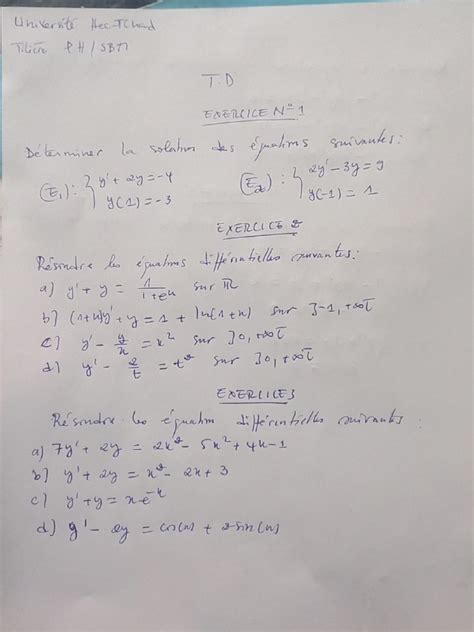 Université Hec-Tchad
Filière PH/SBM
T.D
EXERCICE N° 1
Déterminer la solution des équations suivantes :
(E₁) : { y' + 2y = -4
y(1) = -3
(E₂) : { 2y' - 3y = 9
y(-1) = 1
EXERCICE 2
Résoudre les équations différentielles suivantes :
a) y' + y = 1/(1+eˣ) sur ℝ
b) (1+x)y' + y = 1 + ln(1+x) sur ]-1, +∞[
c) y' - y/x = x² sur ]0, +∞[
d) y' - 2/t = t² sur ]0, +∞[
EXERCICE 3
Résoudre les équation différentielles suivantes :
a) 7y' + 2y = 2x³ - 5x² + 4x - 1
b) y' + 2y = x² - 2x + 3
c) y' + y = xe⁻ˣ
d) y' - 2y = cos(x) + 2sin(x)